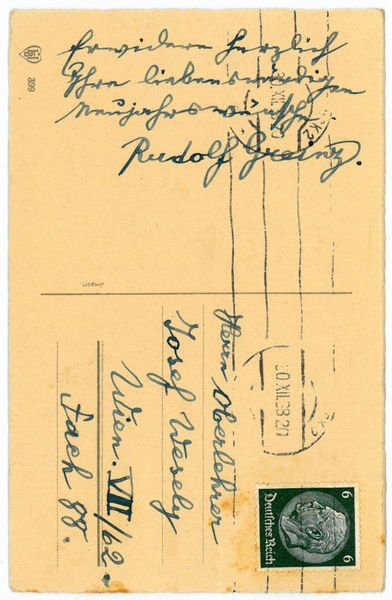 Erwidern herzlich
Ihre liebenswürdigen
Neujahrswünsche
Rudolf Greinz.
309
Herrn Oberlehrer
Josef Wesely
Wien. VII/62.
Fach 88.
30.XII.38.20
6 6
Deutsches Reich